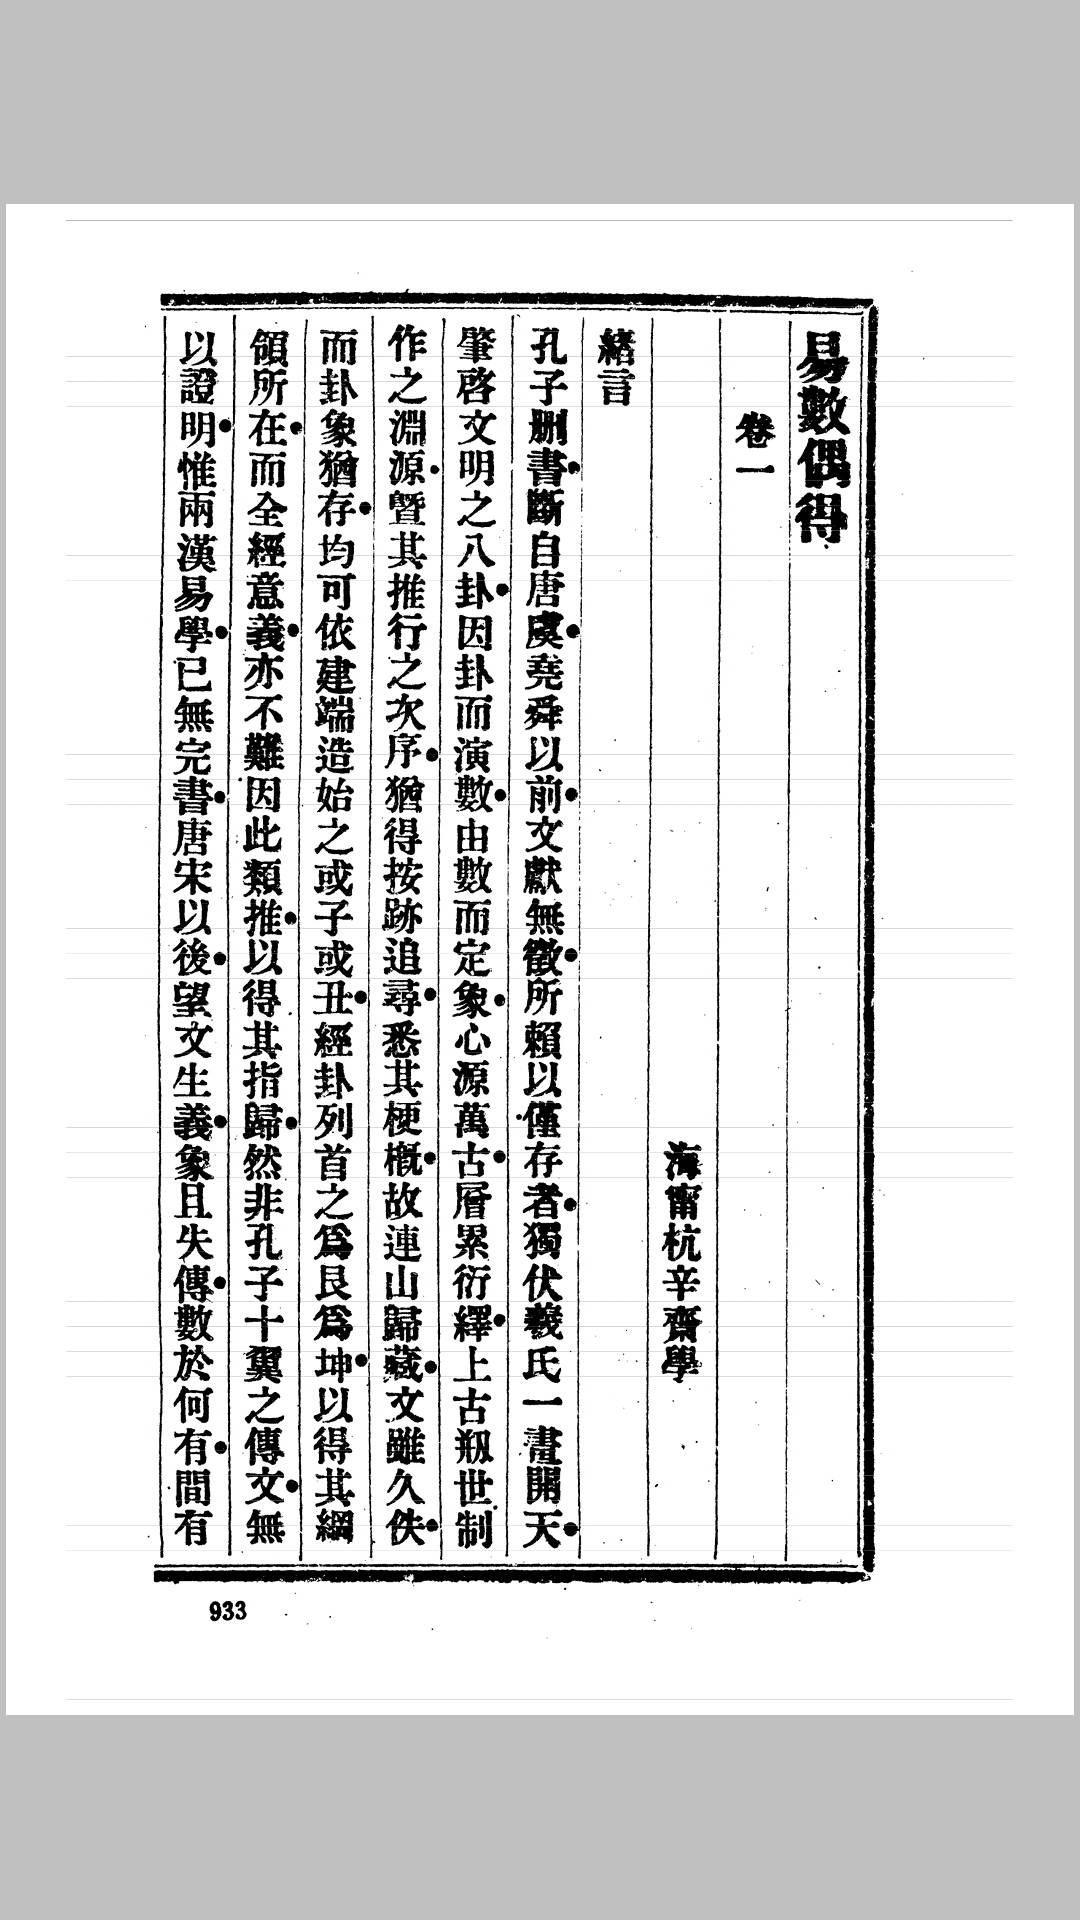 易數偶得
卷一
海甯杭辛齋學
緒言
孔子删書●斷自唐虞●堯舜以前●文獻無徵●所賴以僅存者●獨伏羲氏一畫開天●
肇啓文明之八卦●因卦而演數●由數而定象●心源萬古●層累衍繹●上古刱世制
作之淵源●暨其推行之次序●猶得按跡追尋●悉其梗概●故連山歸藏●文雖久佚●
而卦象猶存●均可依建端造始之或子或丑●經卦列首之爲艮爲坤●以得其綱
領所在●而全經意義●亦不難因此類推●以得其指歸●然非孔子十翼之傳文●無
以證明●惟兩漢易學●已無完書●唐宋以後●望文生義●象且失傳●數於何有●間有
933